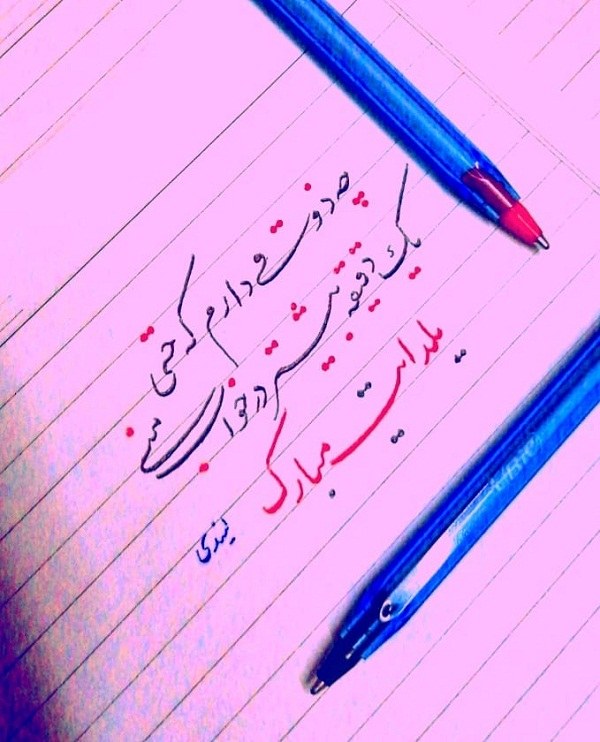 چه ذوقی دارم که حتی
یک دقیقه بیشتر در خواب منی
یلدایت مبارک